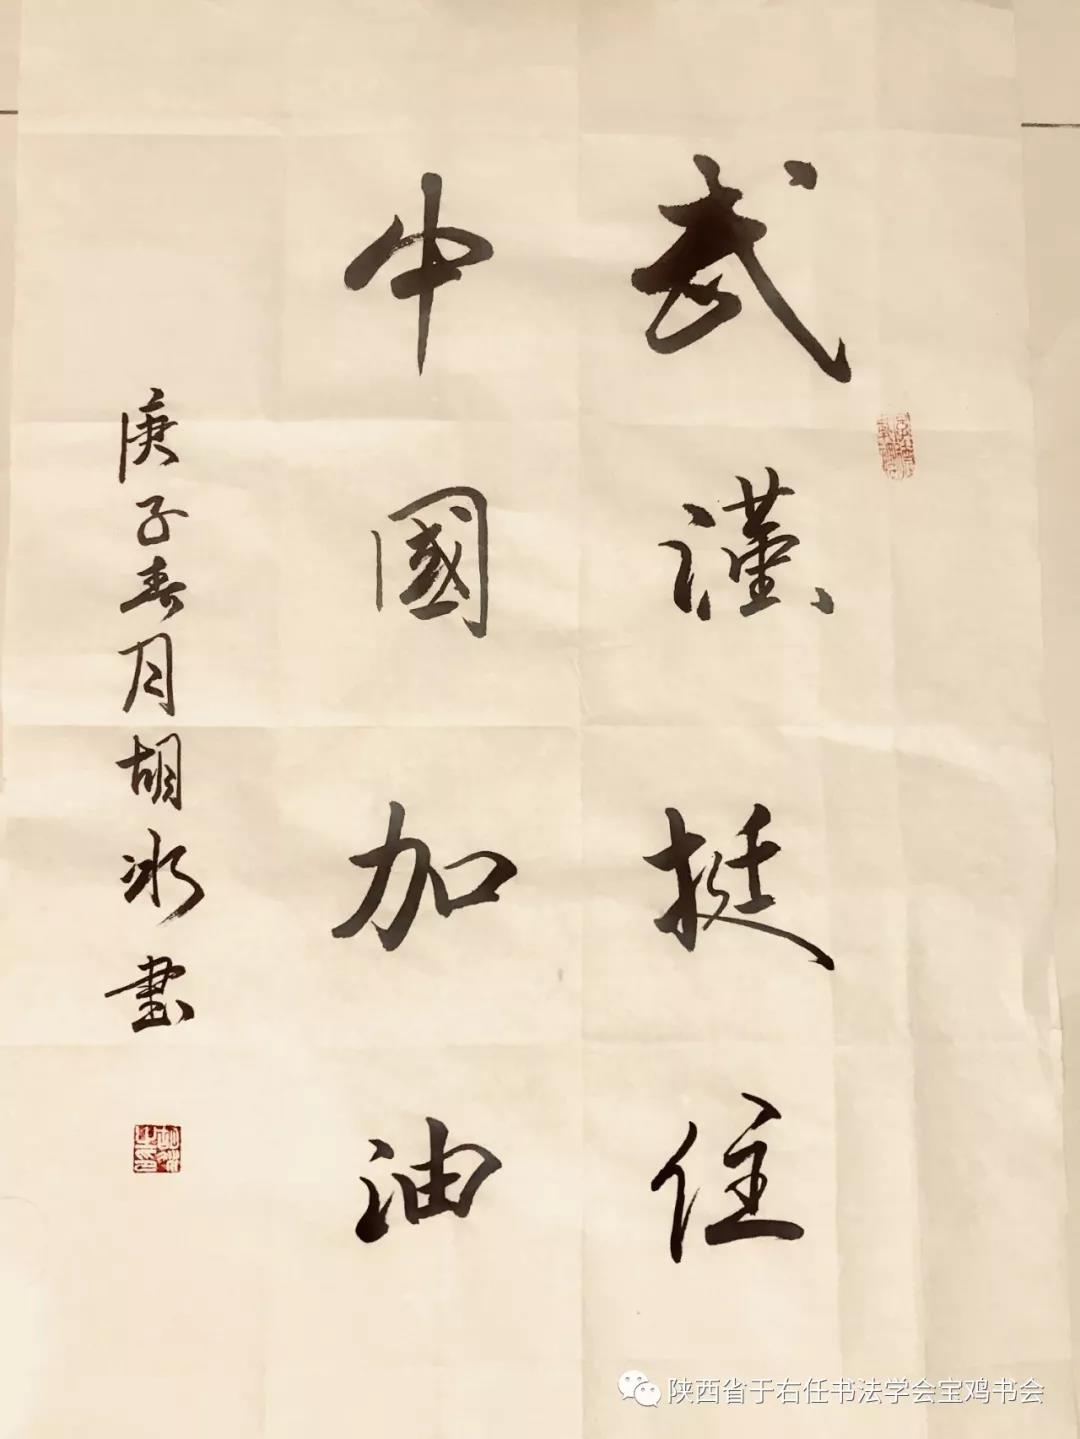 武漢挺住
中國加油
庚子春月胡冰書
陕西省于右任书法学会宝鸡书会